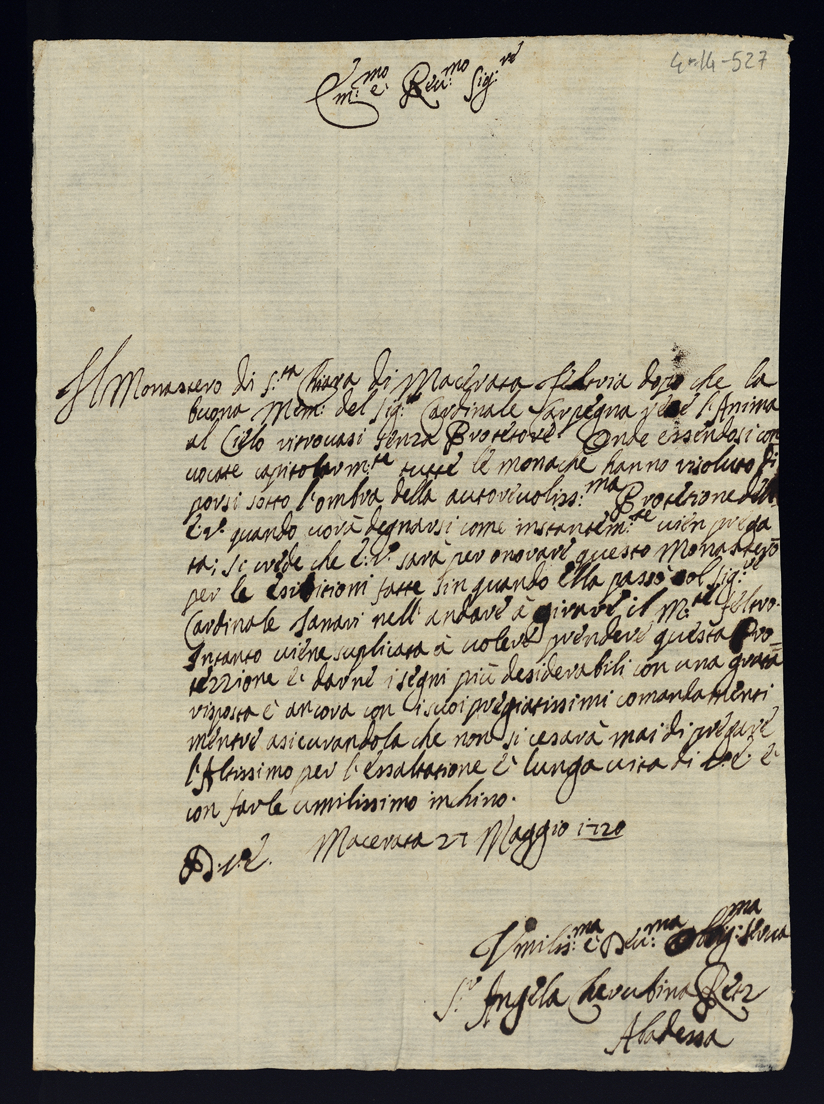 4-14-527
Em:mo e: Reu:mo Sig:re
Il Monastero di S:ta Chiara di Macerata Feltria dopo che la
buona Mem: del Sig: Cardinale Carpegna rese l'Anima
al Cielo ritrouasi senza Protetore. Onde essendosi con
uocate capitolarm:te tutte le monache hanno risoluto di
porsi sotto l'ombra della autoreuoliss:ma Protetione dell
E:V: quando uorà degnarsi come instantem:te uien prega
ta; si crede che E:V: sarà per onorare questo Monastero
per le esibitioni fatte sin quando ella passò col Sig:re
Cardinale Tanari nell'andare à girare il M:te Feltro.
Intanto uiene suplicata à uolere prendere questa Pro=
tezzione è darne i segni più desiderabili con una grata
risposta è ancora con i suoi pregiatissimi comandamenti
mentre asicurandola che non si cesarà mai di pregare
l'Altissimo per l'essaltatione è lunga uita di V:E: è
con farle umilissimo inchino.
D:V:E. Macerata 27 Maggio 1720
Vmilis:ma e Deu:ma Oblig:ma Serua
S:r Angela Cherubina
Abadessa